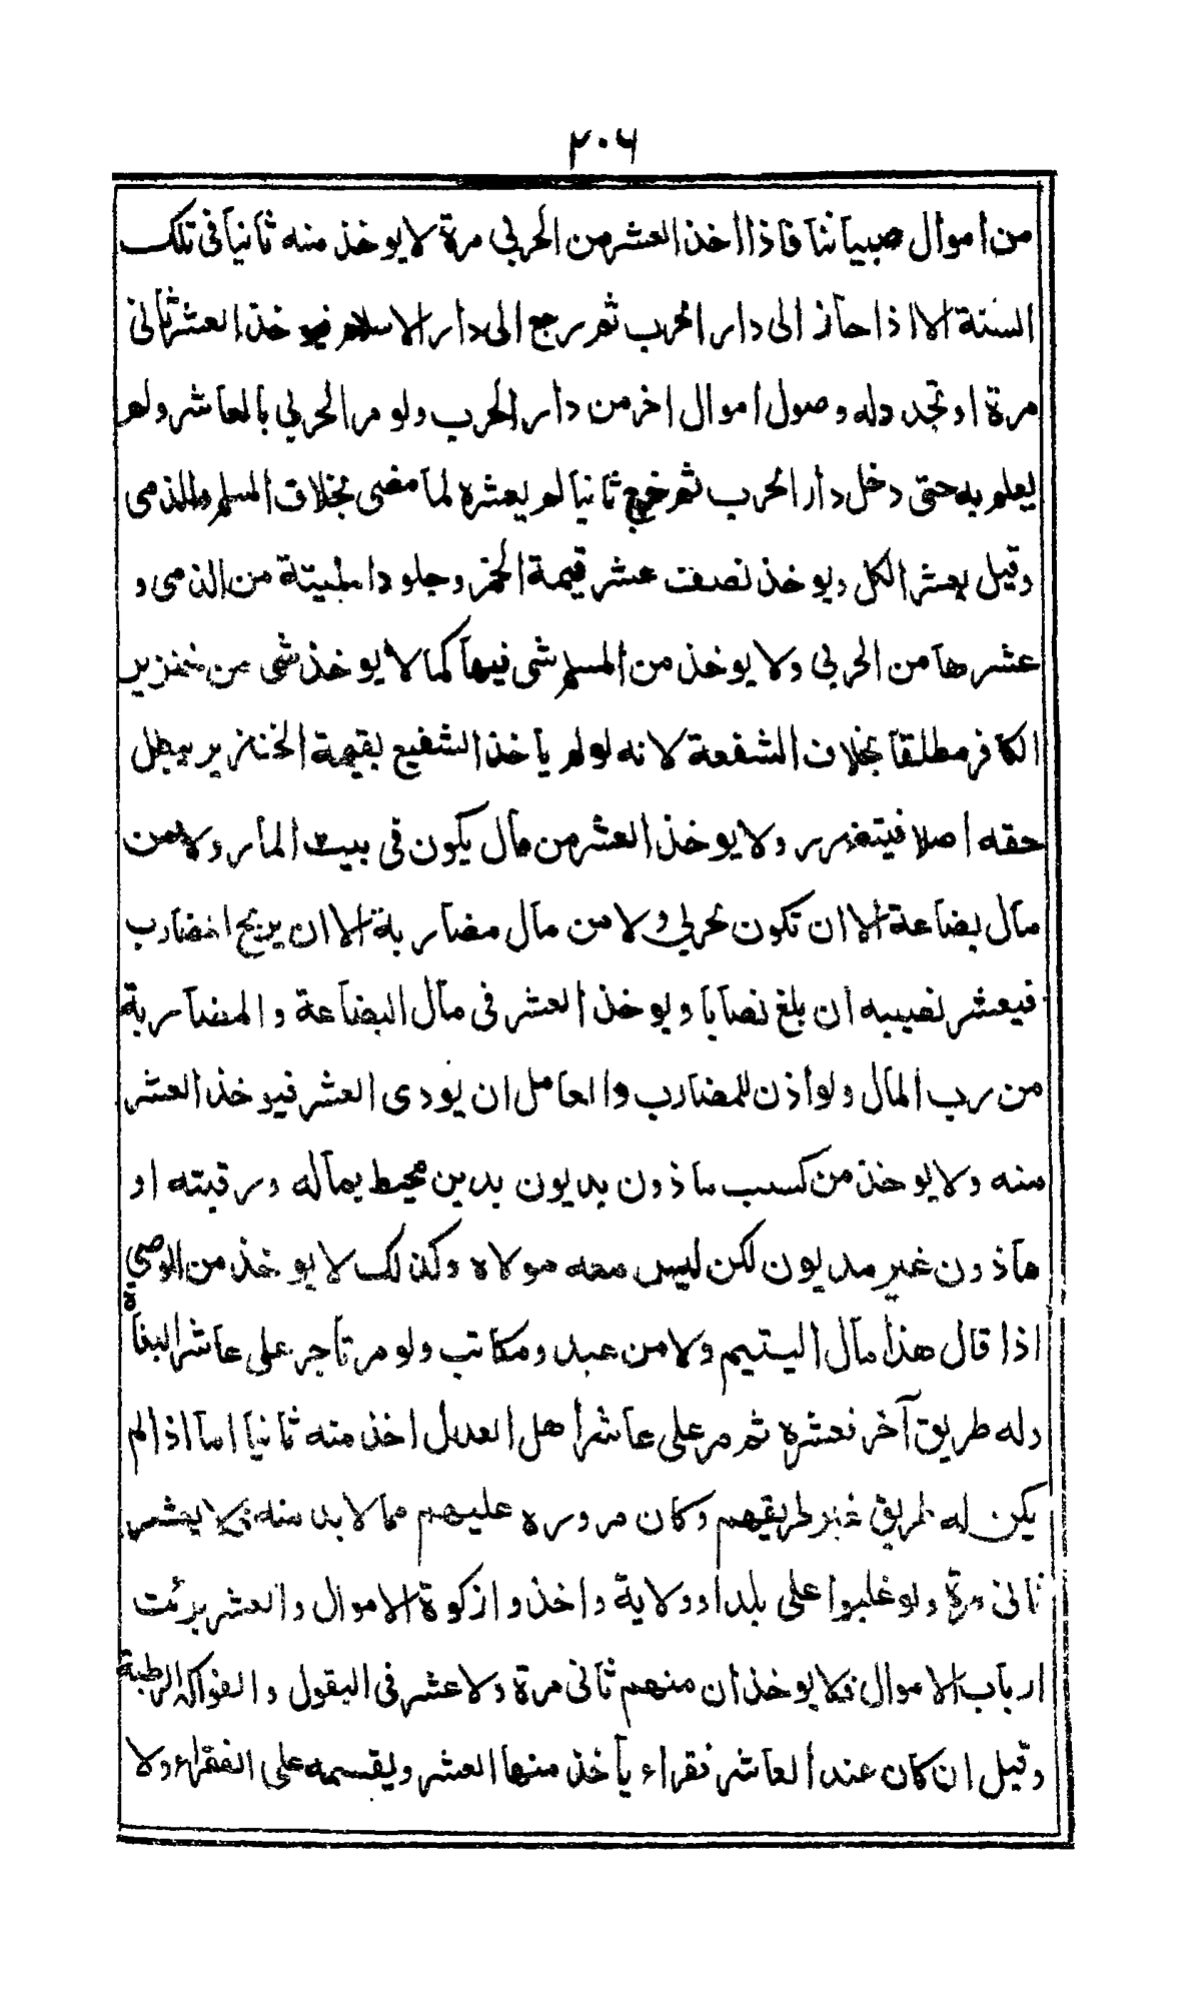 ٢٠٦
من اموال صبياننا فاذا اخذ العشر من الحربي مرة لا يوخذ منه ثانيا فى تلك
السنة الا اذا جاز الى دار الحرب ثم رجع الى دار الاسلام فيوخذ العشر ثانى
مرة او تجدد له وصول اموال اخر من دار الحرب ولو مر الحربي بالعاشر ولم
يعلم به حتى دخل دار الحرب ثم خرج ثانيا لم يعشره لما مضى بخلاف المسلم والذمى
وقيل يعشر الكل ويوخذ نصف عشر قيمة الخمر وجلود الميتة من الذمى و
عشرها من الحربي ولا يوخذ من المسلم شى فيها كما لا يوخذ شى من خنزير
الكافر مطلقا بخلاف الشفعة لانه لولم ياخذ الشفيع بقيمة الخنازير يبطل
حقه اصلا فيتضرر ولا يوخذ العشر من مال يكون فى بيت المار ولا من
مال بضاعة الا ان تكون لحربي ولا من مال مضاربة الا ان يربح المضارب
فيعشر نصيبه ان بلغ نصابا ويوخذ العشر فى مال البضاعة والمضاربة
من رب المال ولو اذن للمضارب والعامل ان يودى العشر فيوخذ العشر
منه ولا يوخذ من كسب ماذون مديون بدين محيط بماله ورقبته او
ماذون غير مديون لكن ليس معه مولاه وكذلك لا يوخذ من الوصى
اذا قال هذا مال اليتيم ولا من عبد ومكاتب ولو مر تاجر على عاشر البغاة
وله طريق آخر فعشره ثم مر على عاشر أهل العدل اخذ منه ثانيا اما اذا لم
يكن له طريق غير طريقهم وكان مروره عليهم مما لا بد منه فلا يعشر
ثانى مرة ولو غلبوا على بلد او ولاية واخذوا زكوة الاموال والعشر برئت
ارباب الاموال فلا يوخذ ان منهم ثانى مرة ولا عشر فى البقول والفواكه الرطبة
وقيل ان كان عند العاشر فقراء يأخذ منها العشر ويقسمه على الفقراء ولا